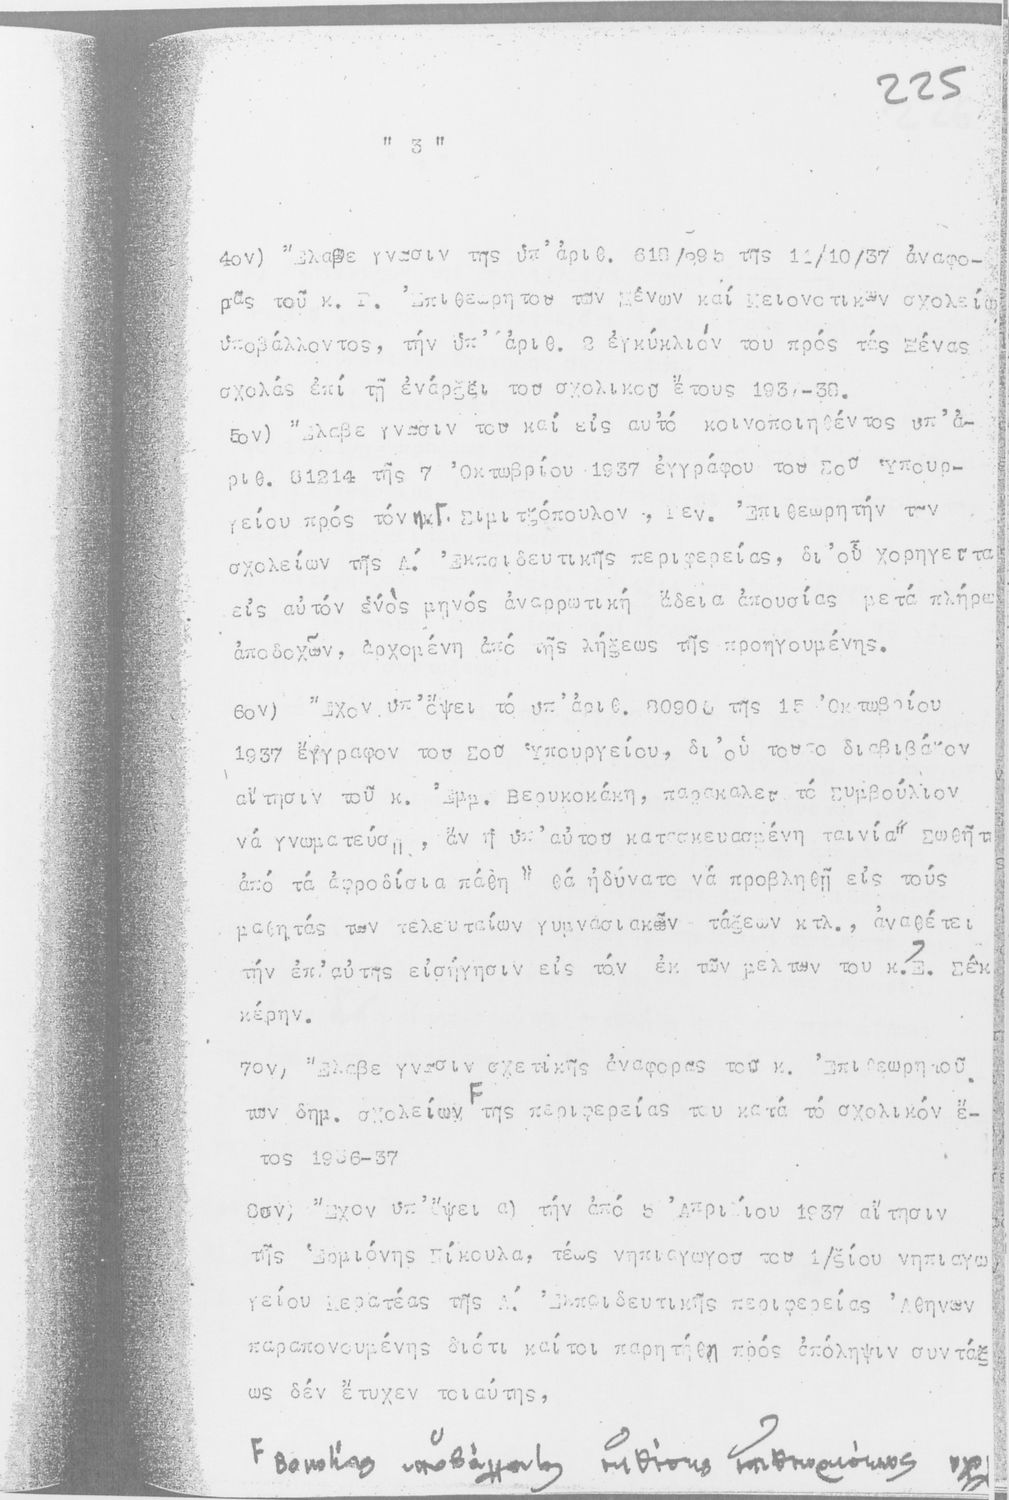 225
" 3 "
4ον) "Ελαβε γνωσιν της ὑπ'ἀριθ. 618/695 τῆς 11/10/37 ἀναφο-
ρᾶς τοῦ κ. Γ. 'Επιθεωρητου των Ξένων καί Μειονοτικῶν σχολείω
ὑποβάλλοντος, τήν ὑπ'ἀριθ. 2 ἐγκύκλιόν του πρός τάς Ξένας
σχολάς ἐπί τῇ ἐνάρξει του σχολικου ἔτους 1937-38.
5ον) "Ελαβε γνωσιν του καί εἰς αυτό κοινοποιηθέντος υπ'ἀ-
ριθ. 81214 τῆς 7 'Οκτωβρίου 1937 ἐγγράφου του Σου 'Υπουρ-
γείου πρός τόν κ Γ. Σιμιτζόπουλον , Γεν. 'Επιθεωρητήν των
σχολείων τῆς Α΄. 'Εκπαιδευτικῆς περιφερείας, δι'οὗ χορηγειτα
εἰς αὐτόν ἑνός μηνός ἀναρρωτική ἄδεια ἀπουσίας μετά πλήρω
ἀποδοχῶν, ἀρχομένη ἀπό τῆς λήξεως τῆς προηγουμένης.
6ον) "Εχον υπ'ὄψει τό υπ'ἀριθ. 80906 της 15 'Οκτωβρίου
1937 ἔγγραφον του Σου 'Υπουργείου, δι'οὑ τουτο διαβιβάζον
αἴτησιν τοῦ κ. 'Εμμ. Βερυκοκάκη, παρακαλει τό Συμβούλιον
νά γνωματεύσῃ , ἄν ἡ ὑπ'αὐτου κατασκευασμένη ταινία" Σωθῆτε
ἀπό τά ἀφροδίσια πάθη " θά ἠδύνατο νά προβληθῇ εἰς τούς
μαθητάς των τελευταίων γυμνασιακῶν τάξεων κτλ., ἀναθέτει
τήν ἐπ'αὐτης εἰσήγησιν εἰς τόν ἐκ τῶν μελτων του κ. Ε. Σέκ
κέρην.
7ον) "Ελαβε γνωσιν σχετικῆς ἀναφορας του κ. 'Επιθεωρητοῦ
των δημ. σχολείων F της περιφερείας του κατά τό σχολικόν ἔ-
τος 1936-37
8ον) "Εχον υπ'ὄψει α) τήν ἀπό 5 'Απριλίου 1937 αἴτησιν
τῆς 'Ερμιόνης Πίκουλα, τέως νηπιαγωγοσ του 1/ξίου νηπιαγω
γείου Κερατέας τῆς Α΄. 'Εκπαιδευτικῆς περιφερείας 'Αθηνων
παραπονουμένης διότι καίτοι παρητήθη πρός ἀπόληψιν συντάξ
ως δέν ἔτυχεν τοιαύτης,
F ὑποβάλλοντος ἐκθέσεις ἐπιθεωρήσεως